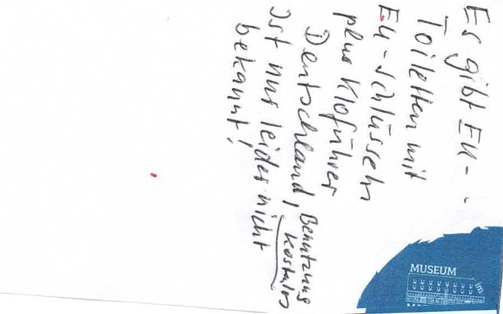 Es gibt EU-
Toiletten mit
EU-Schlüsseln
plus Kloführer
Deutschland, Benutzung
kostenlos
Ist nur leider nicht
bekannt!
MUSEUM
im